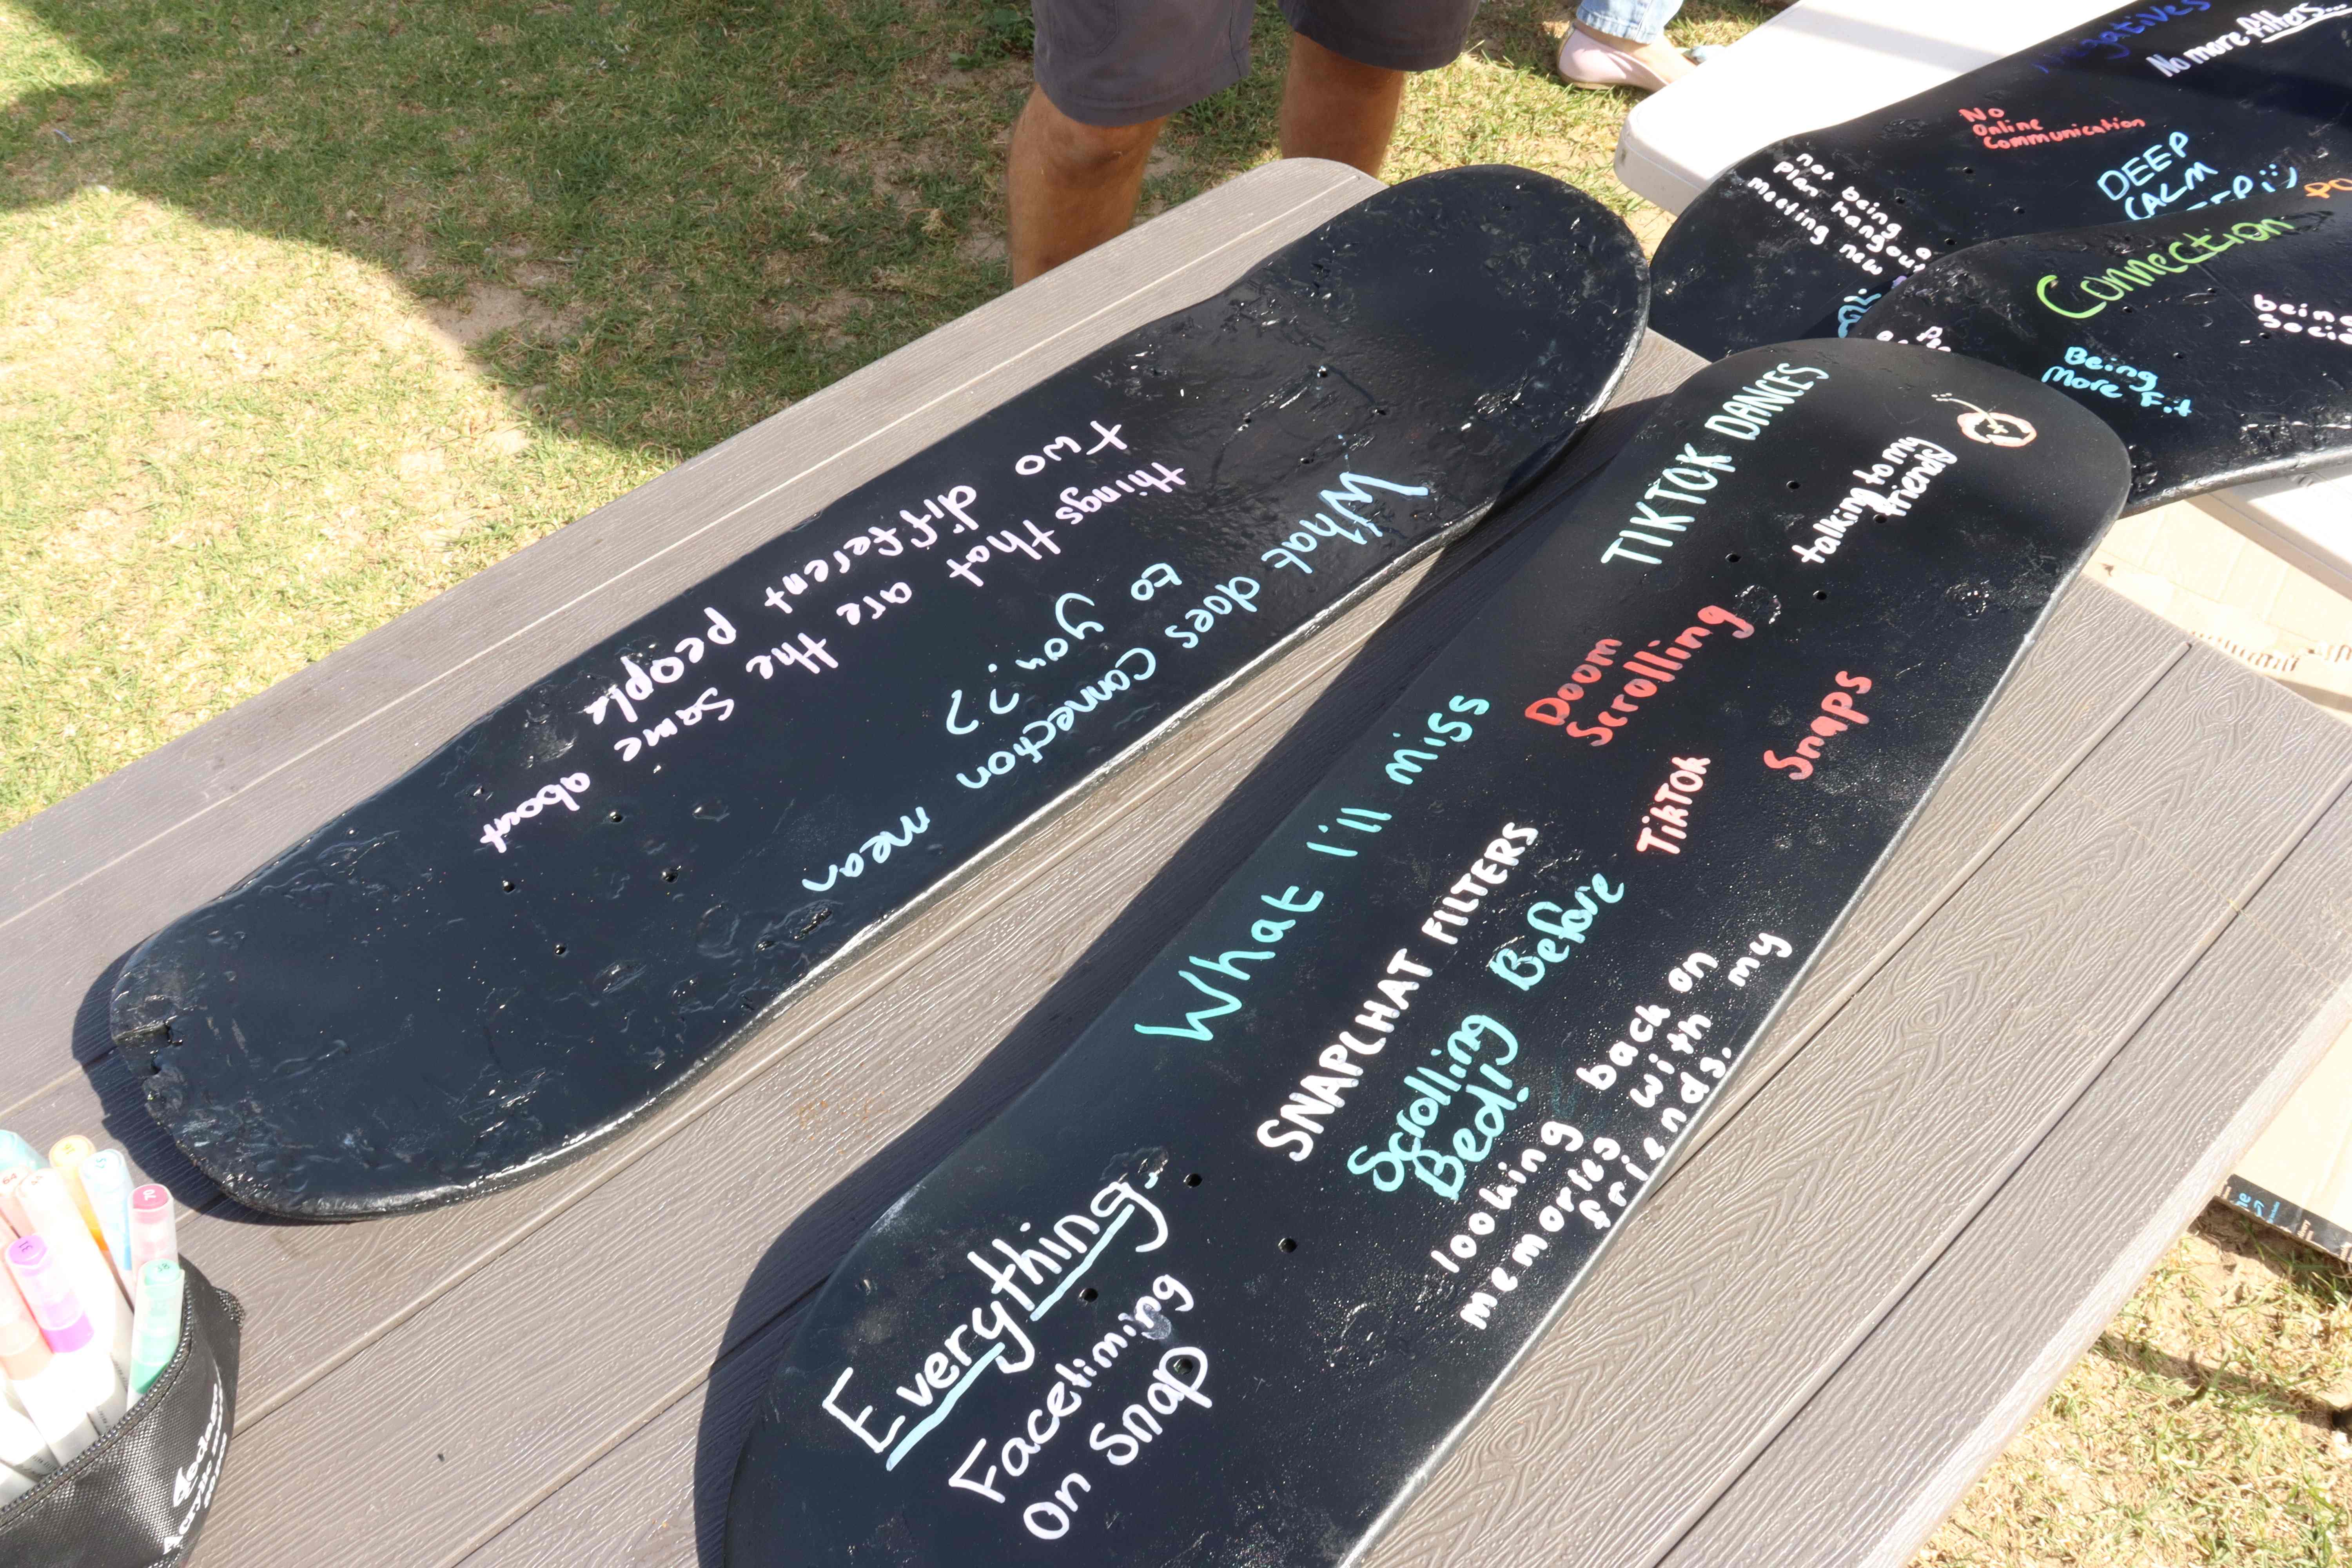 What does connection mean
to you??
things that are the same about
two different people
What I'll miss
TIKTOK DANCES
talking to my
friends
Doom
Scrolling
Snaps
TikTOk
SNAPLHAT FILTERS
Scrolling Before
Bed!
looking back on
memories with my
friends.
Everything
Facetiming
on snap
Negatives
No more filters...
No
Online
Communication
DEEP
CALM
not being
plan hangout
Meeting new
Connection
Being
More Fit
being